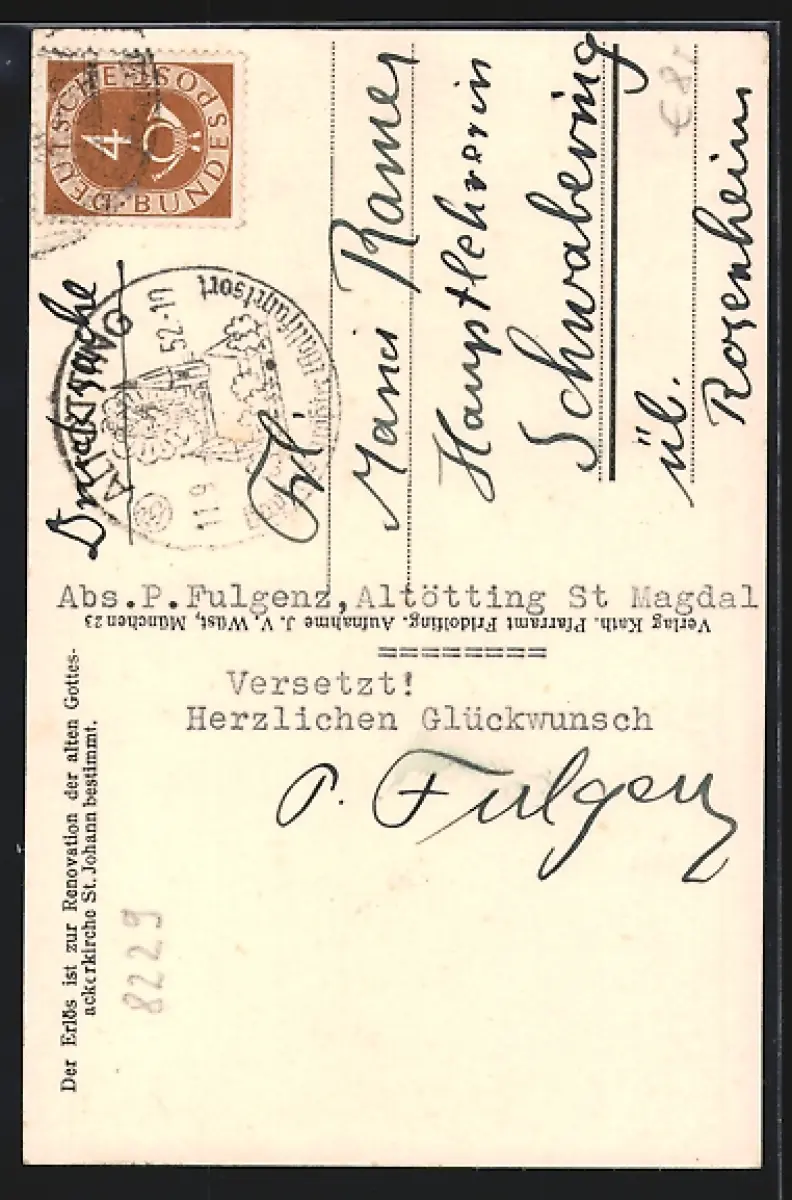 DEUTSCHE BUNDESPOST
4
ALTÖTTING
11.9.52-17
Wallfahrtsort
Drucksache
Frl.
Maria
Hauptlehrerin
Schwabering
üb.
Rosenheim
€ 8,-
Abs.P.Fulgenz,Altötting St Magdal
Verlag Kath. Pfarramt Fridolfing. Aufnahme J. V. Wüst, München 23
========
Versetzt!
Herzlichen Glückwunsch
P. Fulgenz
Der Erlös ist zur Renovation der alten Gottes-
ackerkirche St. Johann bestimmt.
8229